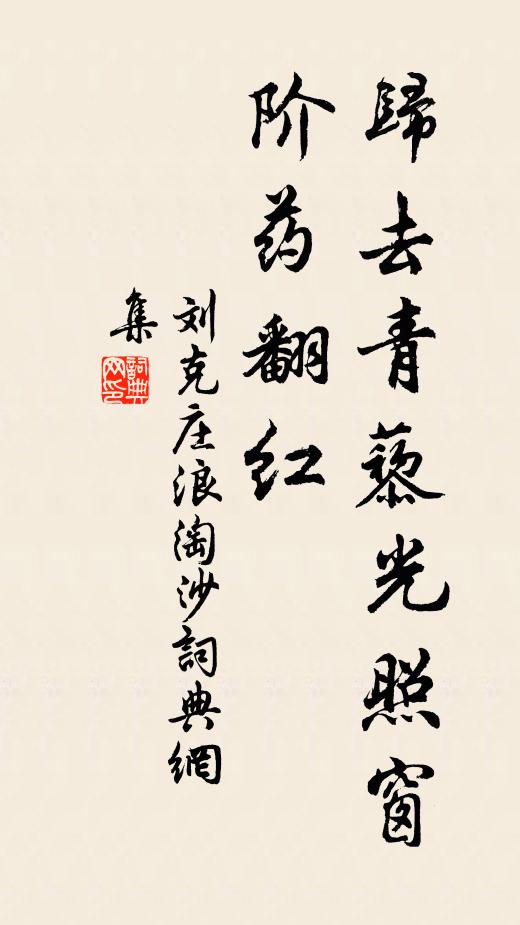 歸去青藜光照窗
阶药翻红
刘克庄浪淘沙詞典網
集
詞典网印